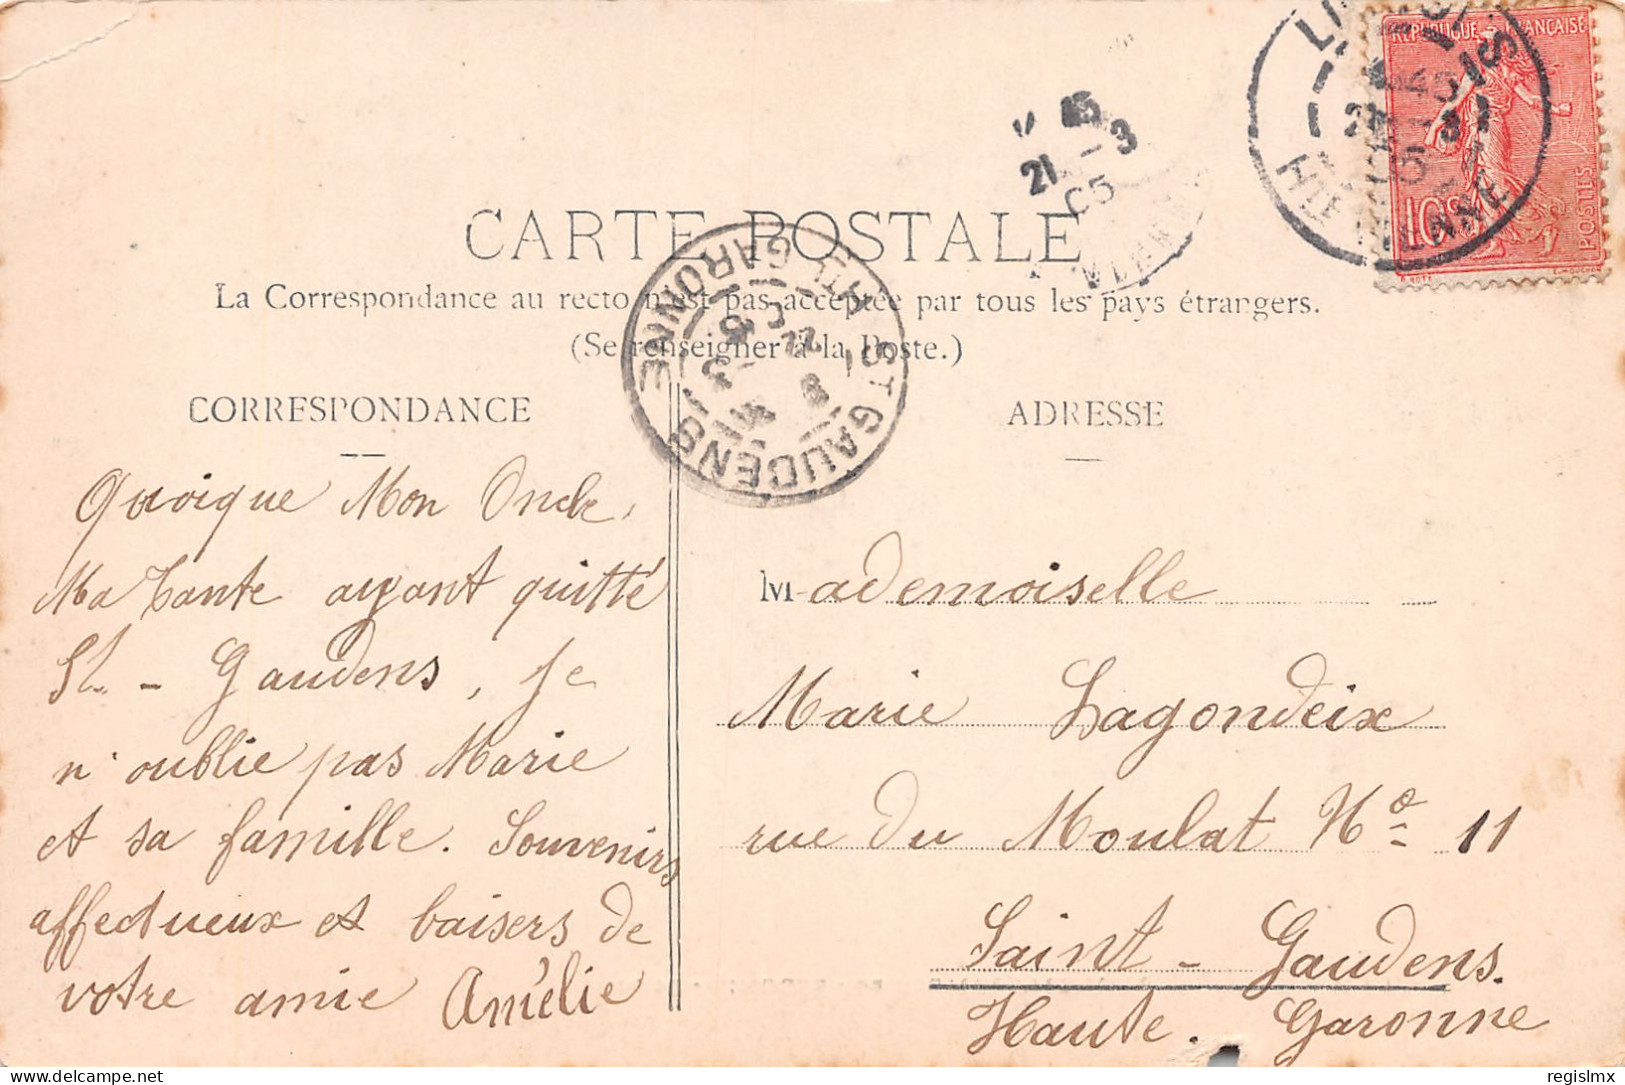 RÉPUBLIQUE FRANÇAISE
10c
POSTES
HTE VIENNE
45
21 -3
05
CARTE POSTALE
La Correspondance au recto n'est pas acceptée par tous les pays étrangers.
(Se renseigner à la Poste.)
ST GAUDENS
HTE GARONNE
CORRESPONDANCE
Quoique Mon Oncle,
Ma Tante ayant quitté
St. - Gaudens, je
n'oublie pas Marie
et sa famille. Souvenirs
affectueux et baisers de
votre amie Amélie
ADRESSE
Mademoiselle
Marie Lagondeix
rue du Moulat No 11
Saint - Gaudens.
Haute. Garonne
Delcampe.net
regislmx